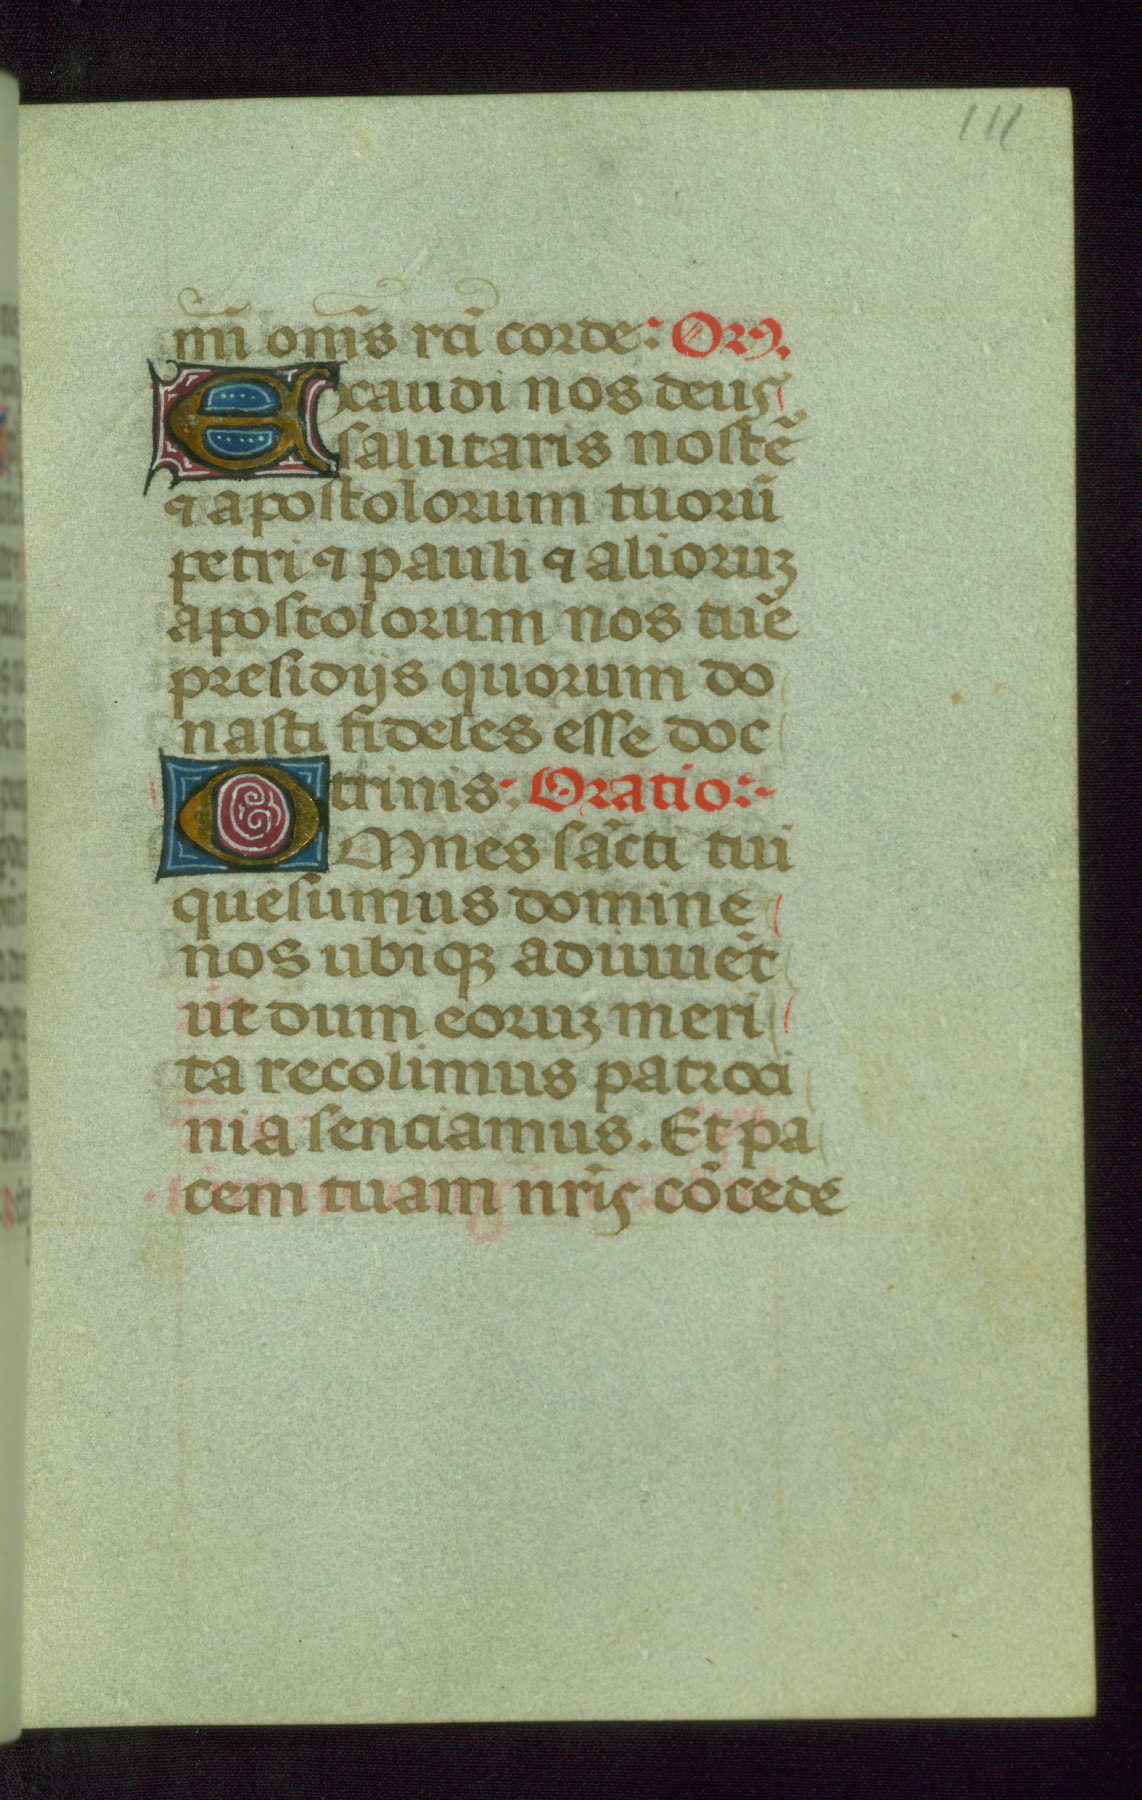 111
mī om̄s rc̄i corde: Or̄o.
Excaudi nos deus
salutaris nostē
⁊ apostolorum tuorū
petri ⁊ pauli ⁊ alioruꝫ
apostolorum nos tuē
presidijs quorum do
nasti fideles esse doc
trinis: Oratio:
OMnes sācti tui
quesumus domine
nos ubiqꝫ adiuuēt
ut dum eoruꝫ meri
ta recolimus patroci
nia senciamus. Et pa
cem tuam nr̄is cōcede